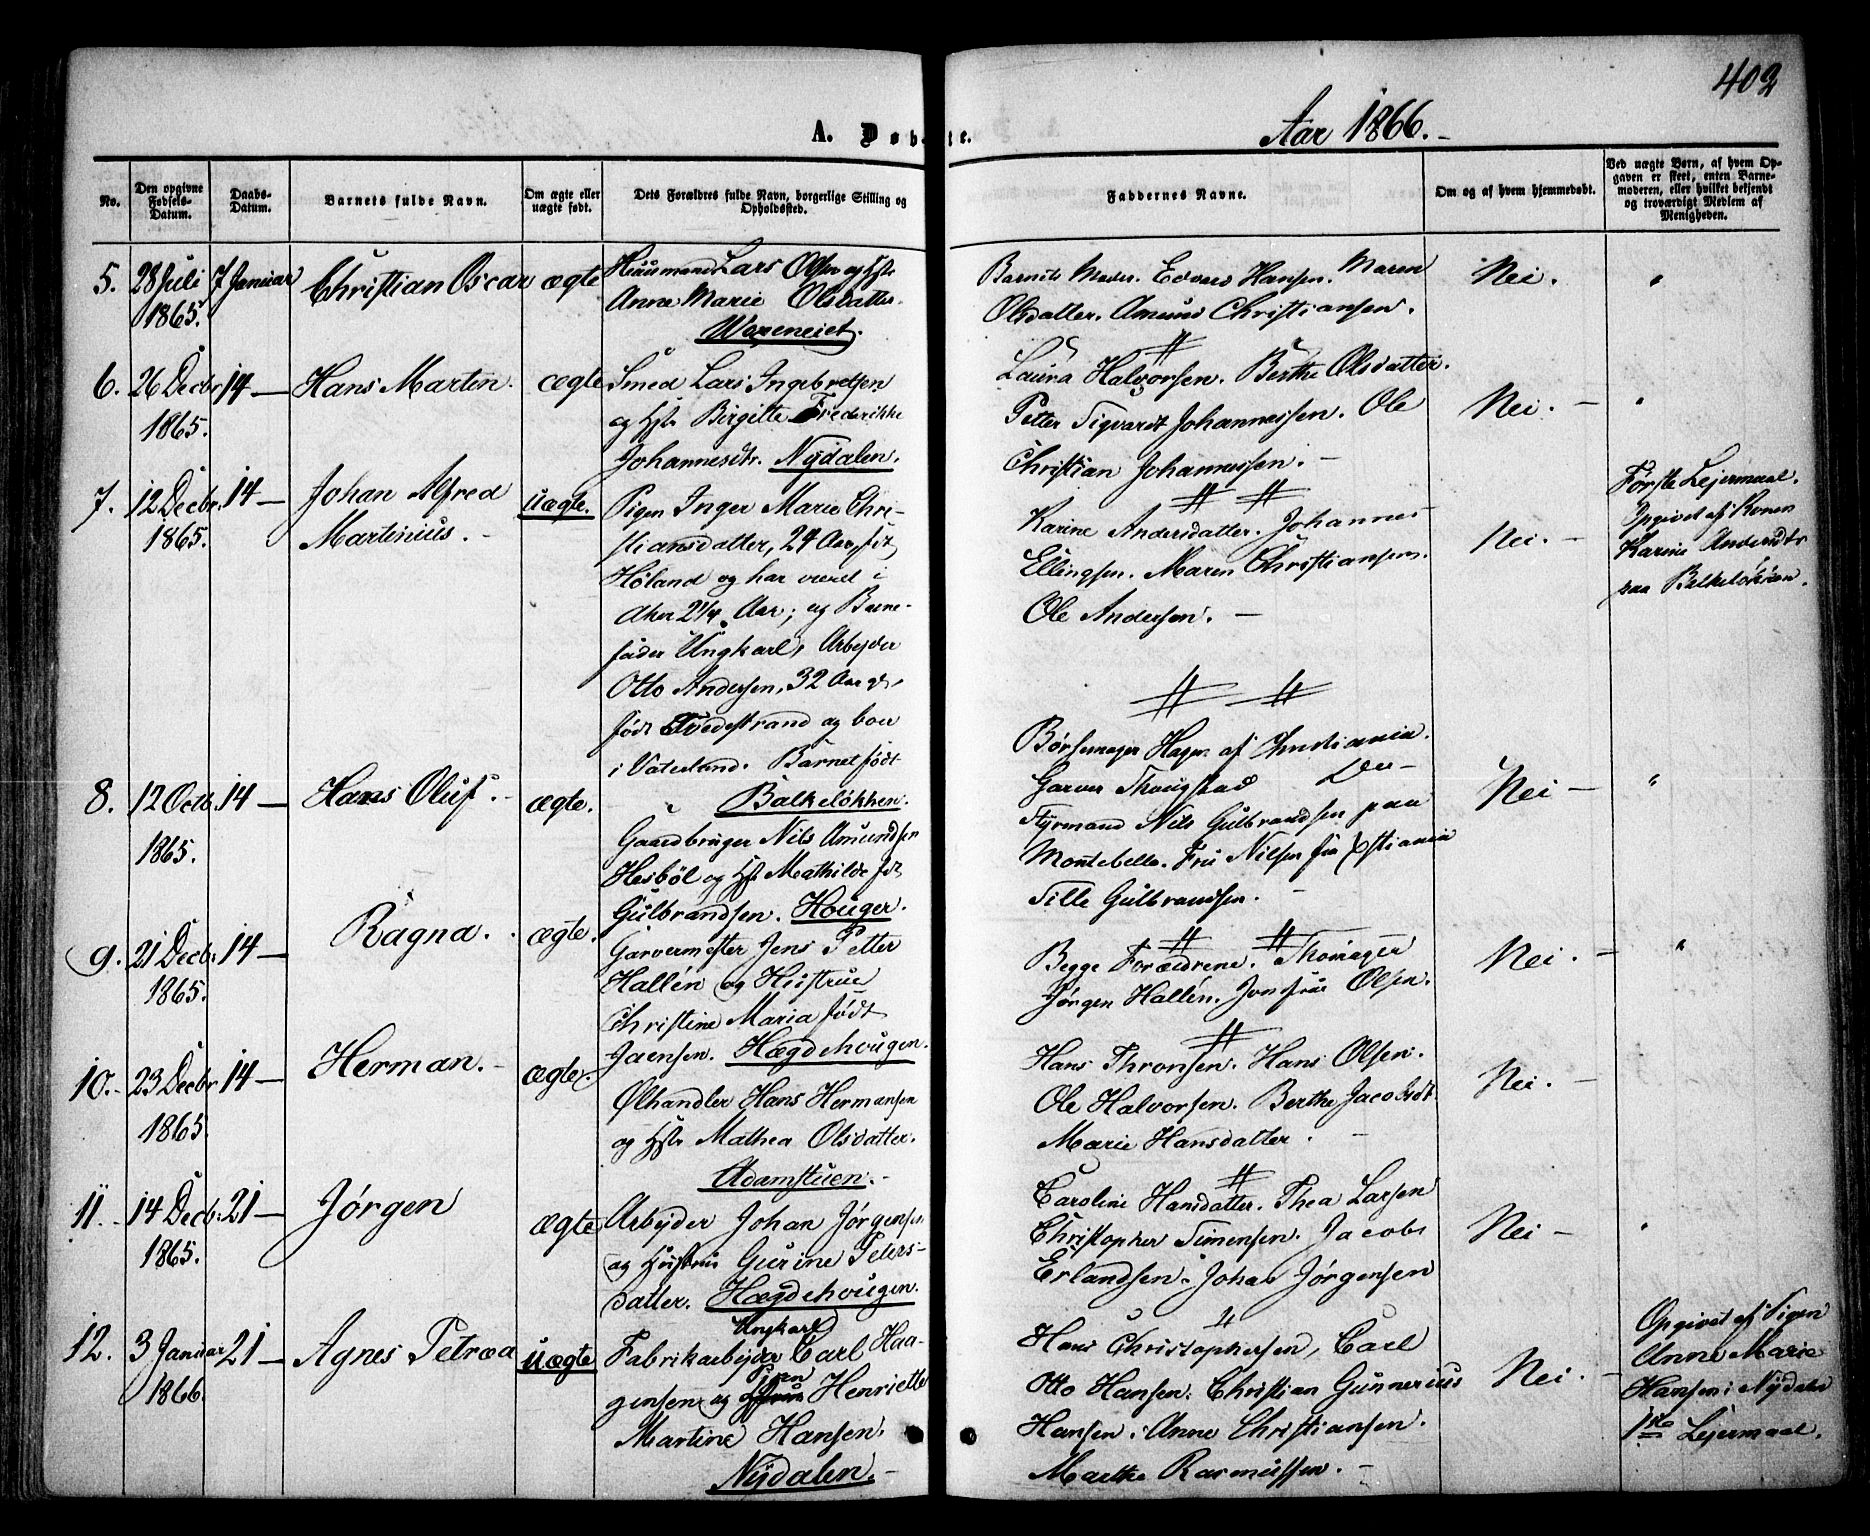 402
A. Døbte.
Aar 1866.
No.
Den opgivne Fødsels-Datum.
Daabs-Datum.
Barnets fulde Navn.
Om ægte eller uægte født.
Dets Forældres fulde Navn, borgerlige Stilling og Opholdssted.
Faddernes Navne.
Om og af hvem hjemmedøbt.
Ved uægte Børn, af hvem Opgaven er skeet, enten Barnemoderen, eller hvilket bekjendt og troværdigt Medlem af Menigheden.
5. 28 Juli 1865. 7 Januar Christian Oscar ægte
Huusmand Lars Olsen og Hstr
Anne Marie Olsdatter.
Barnets Moder. Edvard Hansen. Maren
Olsdatter. Amund Christiansen.
Nei. "
6. 26 Decbr 1865. 14 — Hans Martin. ægte
Smed Lars Ingebretsen
og Hstr Birgitte Frederikke
Johannesdtr. Nydalen.
Laura Halvorsen. Berthe Olsdatter.
Petter Sigvardt Johannessen. Ole
Christian Johannessen. —
Nei. — "
7. 12 Decbr. 1865. 14 — Johan Alfred
Martinius. — uægte.
Pigen Inger Marie Chri-
stiansdatter, 24 Aar, født
Høland og har været i
Aker 2 1/4 Aar; og Barne-
fader Ungkarl, Arbeyder
Otto Andersen, 32 Aar gl.
født Tvedestrand og boer
i Vaterland. Barnet født
Balkeløkken.
Karine Andersdatter. Johannes
Ellingsen. Maren Christiansen.
Ole Andersen. —
Nei. —
Første Lejermaal.
Opgivet af Konen
Karine Andersdtr
paa Balkeløkken.
8. 12 Octb. 1865. 14 — Hans Oluf. — ægte.
Gaardbruger Nils Amundsen
Hesbøl og Hst. Mathilde fdt
Gulbrandsen. Houger.
Børsemager Hagen af Christiania.
Garver Thougstad Do —
Styrmand Nils Gulbrandsen paa
Montebello. Fru Nilsen fra Xstiania
Tille Gulbrandsen. —
Nei — "
9. 21 Decbr. 1865. 14 — Ragna. ægte.
Garvermester Jens Petter
Hallén og Hustrue
Christine Maria født
Jaensen. Hægdehougen.
Begge Forældrene.
Jørgen Hallén. Jomfrue Olsen.
Nei. — "
10. 23 Decbr 1865. 14 — Herman. — ægte.
Ølhandler Hans Hermansen
og Hstr Mathea Olsdatter.
Adamstuen. —
Hans Thronsen. Hans Olsen.
Ole Halvorsen. Berthe Jacobsdt.
Marie Hansdatter. —
Nei. —
11. 14 Decbr. 1865. 21 — Jørgen ægte
Arbeyder Johan Jørgensen
og Hustru Gurine Peters-
datter. Hægdehougen.
Caroline Hansdatter. Thea Larsen
Christopher Simensen. Jacob
Erlandsen. Johan Jørgensen
Nei — "
12. 3 Januar 1866. 21 — Agnes Petræa uægte
Ungkarl
Fabrikarbeyder Carl Haa-
gensen og Pigen Henriette
Martine Hansen.
Nydalen. —
Hans Christophersen, Carl
Otto Hansen. Christian Gunnerius
Hansen. Anne Christiansen
Marthe Rasmussen. —
Nei. —
Opgivet af Pigen
Anne Marie
Hansen i Nydalen
1ste Lejermaal.